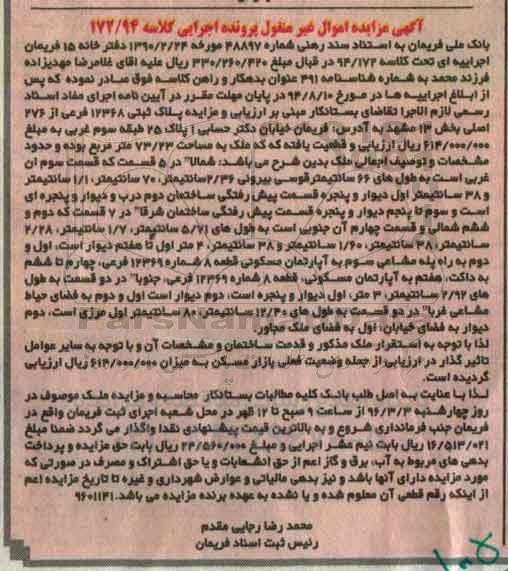 آگهی مزایده اموال غیر منقول پرونده اجرایی کلاسه ۱۷۲/۹۴
بانک ملی فریمان به استناد سند رهنی شماره ۴۸۸۹۷ مورخه ۱۳۹۰/۲/۲۴ دفتر خانه ۱۵ فریمان
اجراییه ای تحت کلاسه ۹۴/۱۷۲ در قبال مبلغ ۳۳۰/۲۶۰/۴۲۰ ریال علیه اقای غلامرضا مهدیزاده
فرزند محمد به شماره شناسنامه ۴۹۱ عنوان بدهکار و راهن کلاسه فوق صادر نموده که پس
از ابلاغ اجراییه ها در مورخ ۹۴/۸/۱۰ در پایان مهلت مقرر در آیین نامه اجرای مفاد اسناد
رسمی لازم الاجرا تقاضای بستانکار مبنی بر ارزیابی و مزایده پلاک ثبتی ۱۲۳۶۸ فرعی از ۲۷۶
اصلی بخش ۱۳ مشهد به آدرس: فریمان خیابان دکتر حسابی ۱ پلاک ۲۵ طبقه سوم غربی به مبلغ
۶۱۴/۰۰۰/۰۰۰ ریال ارزیابی و قطعیت یافته که که ملک به مساحت ۷۳/۲۳ متر مربع بوده و حدود
مشخصات و توصیف اجمالی ملک بدین شرح می باشد: شمالا" در ۵ قسمت که قسمت سوم ان
غربی است به طول های ۶۶ سانتیمترقوسی بیرونی ۲/۳۶سانتیمتر، ۷۰ سانتیمتر، ۱/۱ سانتیمتر
و ۳۸ سانتیمتر اول دیوار و پنجره قسمت پیش رفتگی ساختمان دوم درب و دیوار و پنجره ای
است و سوم تا پنجم دیوار و پنجره قسمت پیش رفتگی ساختمان شرقا" در ۷ قسمت که دوم و
ششم شمالی و قسمت چهارم آن جنوبی است به طول های ۵/۷۱ سانتیمتر، ۱/۷ سانتیمتر، ۲/۲۸
سانتیمتر، ۳۸ سانتیمتر، ۱/۶۰ سانتیمتر و ۳۸ سانتیمتر، ۴ متر اول تا هفتم دیوار است، اول و
دوم به راه پله مشاعی سوم به آپارتمان مسکونی قطعه ۸ شماره ۱۲۳۶۹ فرعی، چهارم تا ششم
به داکت، هفتم به آپارتمان مسکونی، قطعه ۸ شماره ۱۲۳۶۹ فرعی، جنوبا" در دو قسمت به طول
های ۲/۹۲ سانتیمتر، ۳ متر، اول دیوار و پنجره است، دوم دیوار است اول و دوم به فضای حیاط
مشاعی غربا" در دو قسمت به طول های ۱۲/۴۰ سانتیمتر، ۸۰ سانتیمتر اول مرزی است، دوم
دیوار به فضای خیابان، اول به فضای ملک مجاور.
لذا با توجه به استقرار ملک مذکور و قدمت ساختمان و مشخصات آن و با توجه به سایر عوامل
تاثیر گذار در ارزیابی از جمله وضعیت فعلی بازار مسکن به میزان ۶۱۴/۰۰۰/۰۰۰ ریال ارزیابی
گردیده است.
لذا با عنایت به اصل طلب بانک کلیه مطالبات بستانکار محاسبه و مزایده ملک موصوف در
روز چهارشنبه ۹۶/۳/۳ از ساعت ۹ صبح تا ۱۲ ظهر در محل شعبه اجرای ثبت فریمان واقع در
فریمان جنب فرمانداری شروع و به بالاترین قیمت پیشنهادی نقدا واگذار می گردد ضمنا مبلغ
۱۶/۵۱۳/۰۲۱ ریال بابت نیم عشر اجرایی و مبلغ ۲۴/۵۶۰/۰۰۰ ریال بابت حق مزایده و پرداخت
بدهی های مربوط به آب، برق و گاز اعم از حق انشعابات و یا حق اشتراک و مصرف در صورتی که
مورد مزایده دارای آنها باشد و نیز بدهی مالیاتی و عوارض شهرداری و غیره تا تاریخ مزایده اعم
از اینکه رقم قطعی آن معلوم شده و یا نشده به عهده برنده مزایده می باشد.۹۶۰۱۱۴۱
محمد رضا رجایی مقدم
رئیس ثبت اسناد فریمان